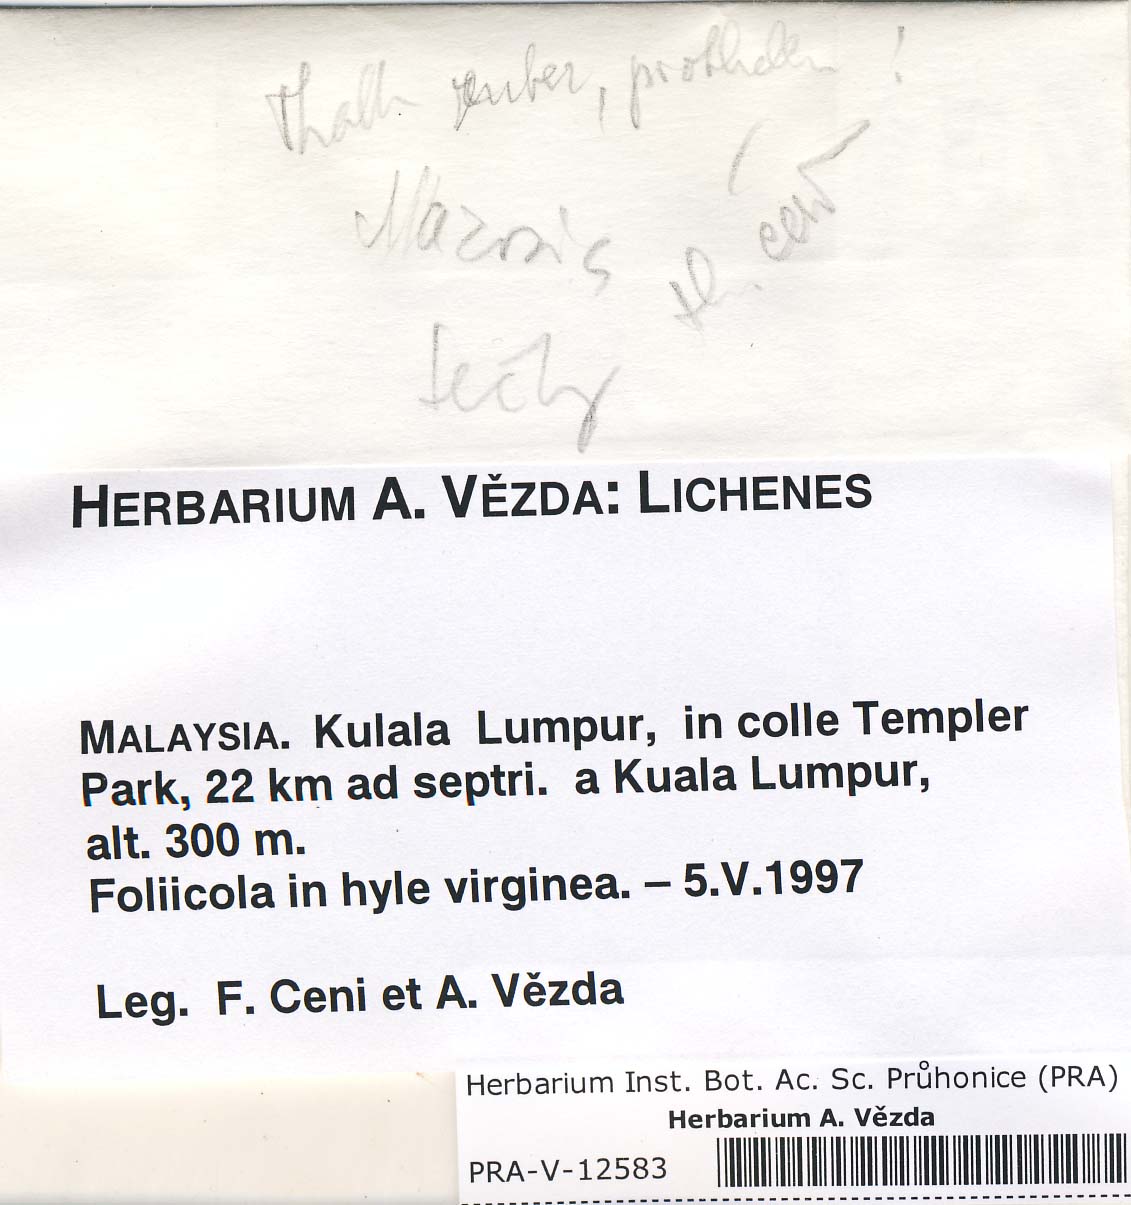 Mazosia
HERBARIUM A. VĚZDA: LICHENES
MALAYSIA. Kulala Lumpur, in colle Templer
Park, 22 km ad septri. a Kuala Lumpur,
alt. 300 m.
Foliicola in hyle virginea. – 5.V.1997
Leg. F. Ceni et A. Vězda
Herbarium Inst. Bot. Ac. Sc. Průhonice (PRA)
Herbarium A. Vězda
PRA-V-12583